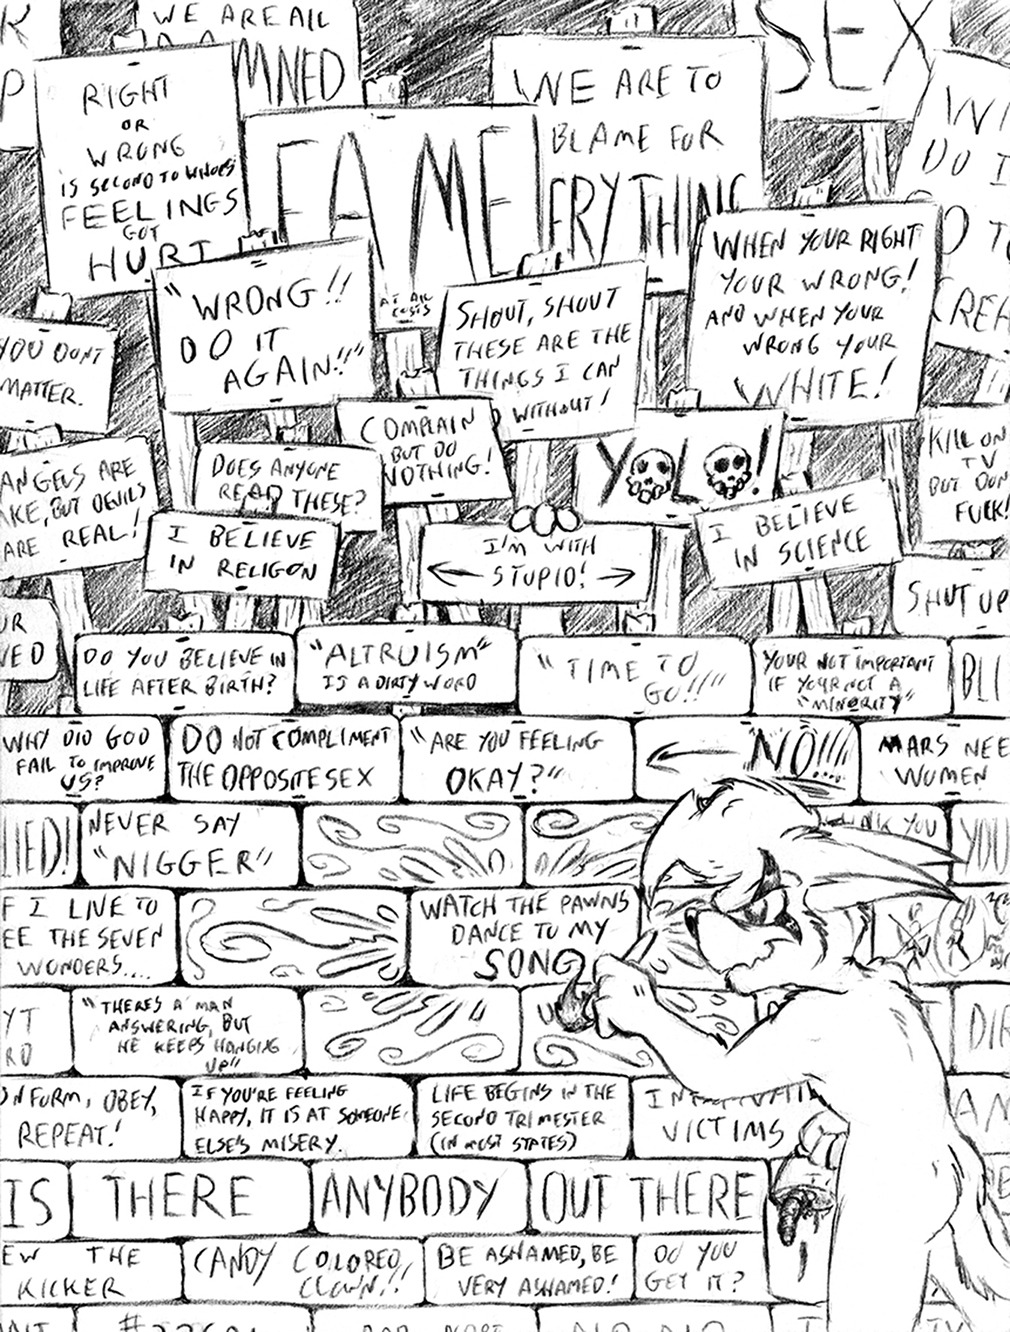 WE ARE All
DAMNED
SEX
RIGHT
OR
WRONG
IS SECOND TO WHOES
FEELINGS
GOT
HURT
FAME
AT All
COSTS
WE ARE TO
BLAME FOR
ERYTHING
DO I
"WRONG!!
DO IT
AGAIN!!"
SHOUT, SHOUT
THESE ARE THE
THINGS I CAN
DO WITHOUT!
WHEN YOUR RIGHT
YOUR WRONG!
AND WHEN YOUR
WRONG YOUR
WHITE!
YOU DONT
MATTER.
COMPLAIN
BUT DO
NOTHING!
YOLO!
KILL ON
TV
BUT DON
FUCK!
ANGELS ARE
AKE, BUT DEVILS
ARE REAL!
DOES ANYONE
READ THESE?
I BELIEVE
IN RELIGON
I'M WITH
STUPID!
I BELIEVE
IN SCIENCE
SHUT UP
UR
VED
DO YOU BELIEVE IN
LIFE AFTER BIRTH?
"ALTRUISM"
IS A DIRTY WORD
"TIME TO
GO!!"
YOUR NOT IMPORTANT
IF YOUR NOT A
"MINORITY"
BLI
WHY DID GOD
FAIL TO IMPROVE
US?
DO NOT COMPLIMENT
THE OPPOSITE SEX
"ARE YOU FEELING
OKAY?"
NO!!!....
MARS NEE
WOMEN
LIED!
NEVER SAY
"NIGGER"
YOU
YOU
F I LIVE TO
EE THE SEVEN
WONDERS....
WATCH THE PAWNS
DANCE TO MY
SONG
YT
RO
"THERES A MAN
ANSWERING, BUT
HE KEEPS HANGING
UP"
DIR
ONFORM, OBEY,
REPEAT!
IF YOU'RE FEELING
HAPPY, IT IS AT SOMEONE
ELSE'S MISERY.
LIFE BEGINS IN THE
SECOND TRIMESTER
(IN MOST STATES)
VICTIMS
AN
IS THERE ANYBODY OUT THERE
EW THE
KICKER
CANDY COLORED
CLOWN!!
BE ASHAMED, BE
VERY ASHAMED!
DO YOU
GET IT?